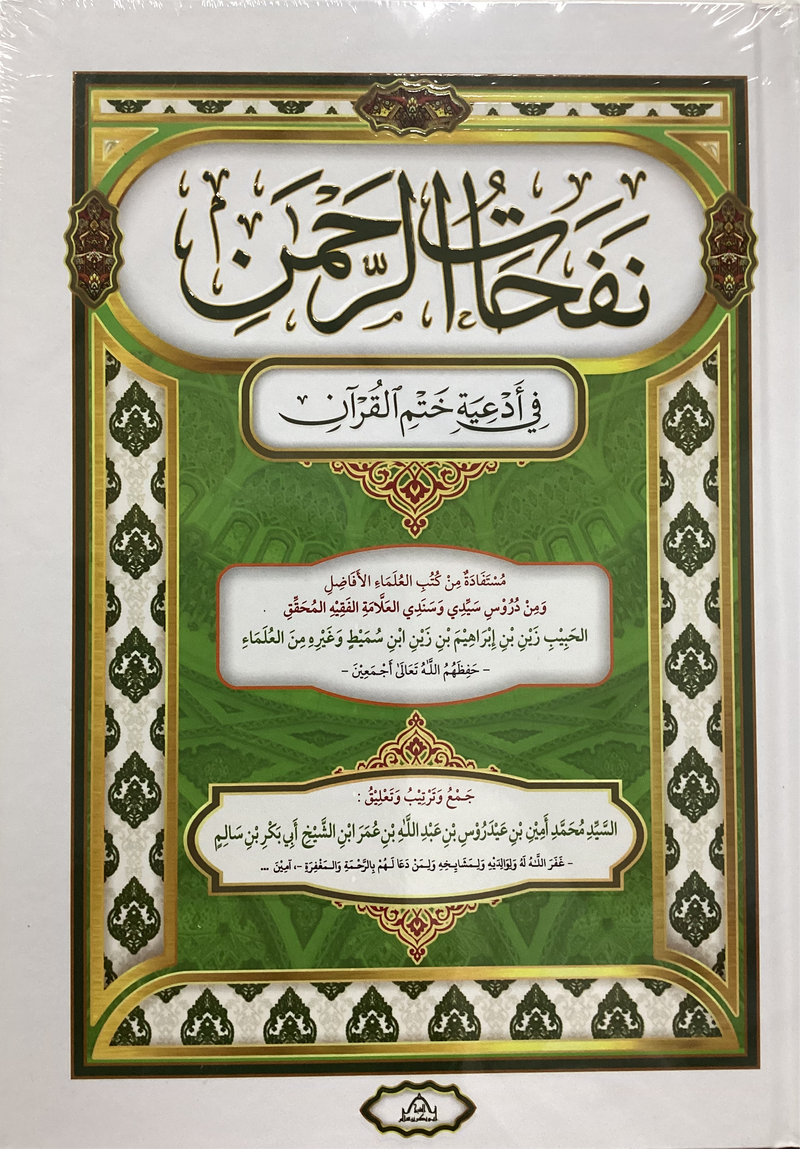 نَفَحَاتُ الرَّحْمَنِ
فِي أَدْعِيَةِ خَتْمِ الْقُرْآنِ
مُسْتَفَادَةٌ مِنْ كُتُبِ العُلَمَاءِ الأَفَاضِلِ
وَمِنْ دُرُوْسِ سَيِّدِي وَسَنَدِي العَلَّامَةِ الفَقِيْهِ المُحَقِّقِ
الحَبِيْبِ زَيْنِ بْنِ إِبْرَاهِيْمَ بْنِ زَيْنِ ابْنِ سُمَيْطٍ وَغَيْرِهِ مِنَ العُلَمَاءِ
- حَفِظَهُمُ اللَّهُ تَعَالَى أَجْمَعِيْنَ -
جَمْعُ وَتَرْتِيْبُ وَتَعْلِيْقُ :
السَّيِّدِ مُحَمَّدِ أَمِيْنِ بْنِ عَيْدَرُوْسِ بْنِ عَبْدِ اللَّهِ بْنِ عُمَرَ ابْنِ الشَّيْخِ أَبِي بَكْرِ بْنِ سَالِمٍ
- غَفَرَ اللَّهُ لَهُ وَلِوَالِدَيْهِ وَلِمَشَايِخِهِ وَلِمَنْ دَعَا لَهُمْ بِالرَّحْمَةِ وَالمَغْفِرَةِ -، آمِيْنَ ...